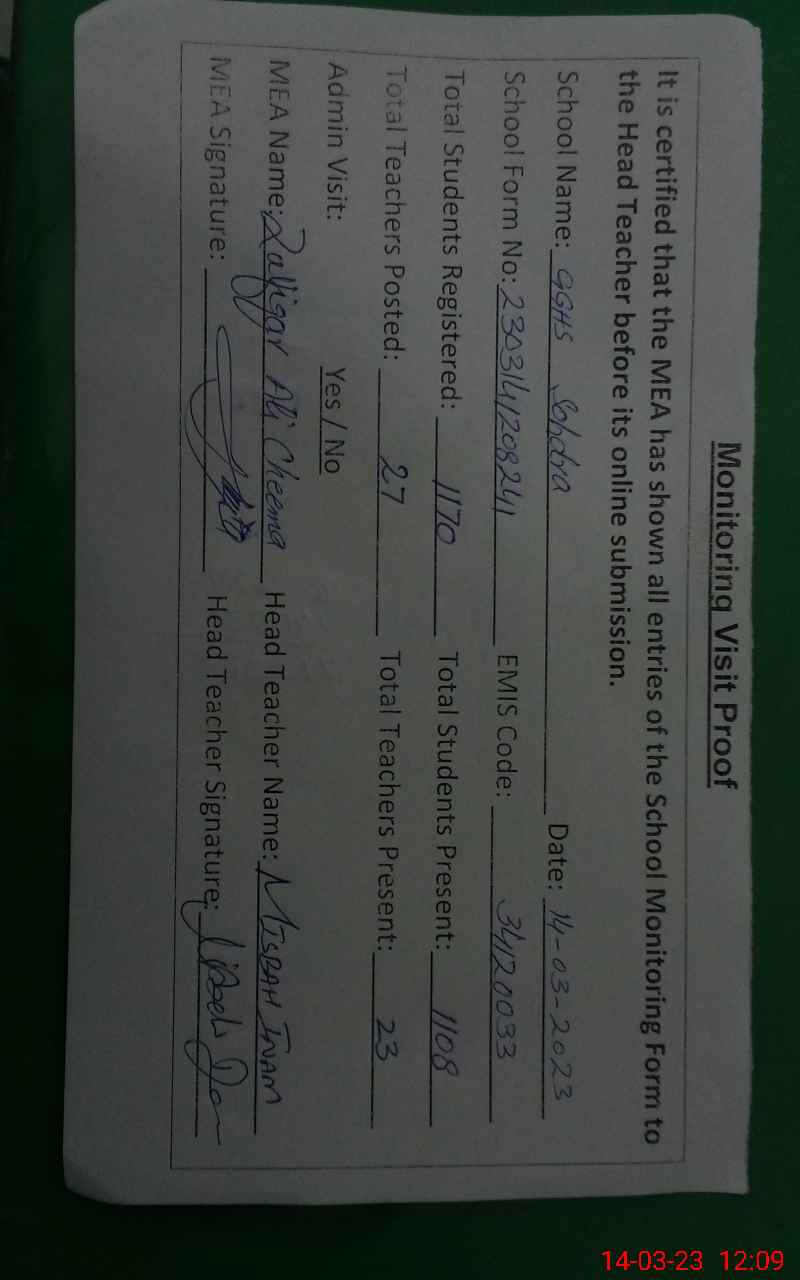 Monitoring Visit Proof
It is certified that the MEA has shown all entries of the School Monitoring Form to
the Head Teacher before its online submission.
School Name: GGHS Sohdra Date: 14-03-2023
School Form No: 2303141208241 EMIS Code: 34120033
Total Students Registered: 1170 Total Students Present: 1108
Total Teachers Posted: 27 Total Teachers Present: 23
Admin Visit: Yes / No
MEA Name: Zulfiqar Ali Cheema Head Teacher Name: MISBAH INAM
MEA Signature: Head Teacher Signature:
14-03-23 12:09